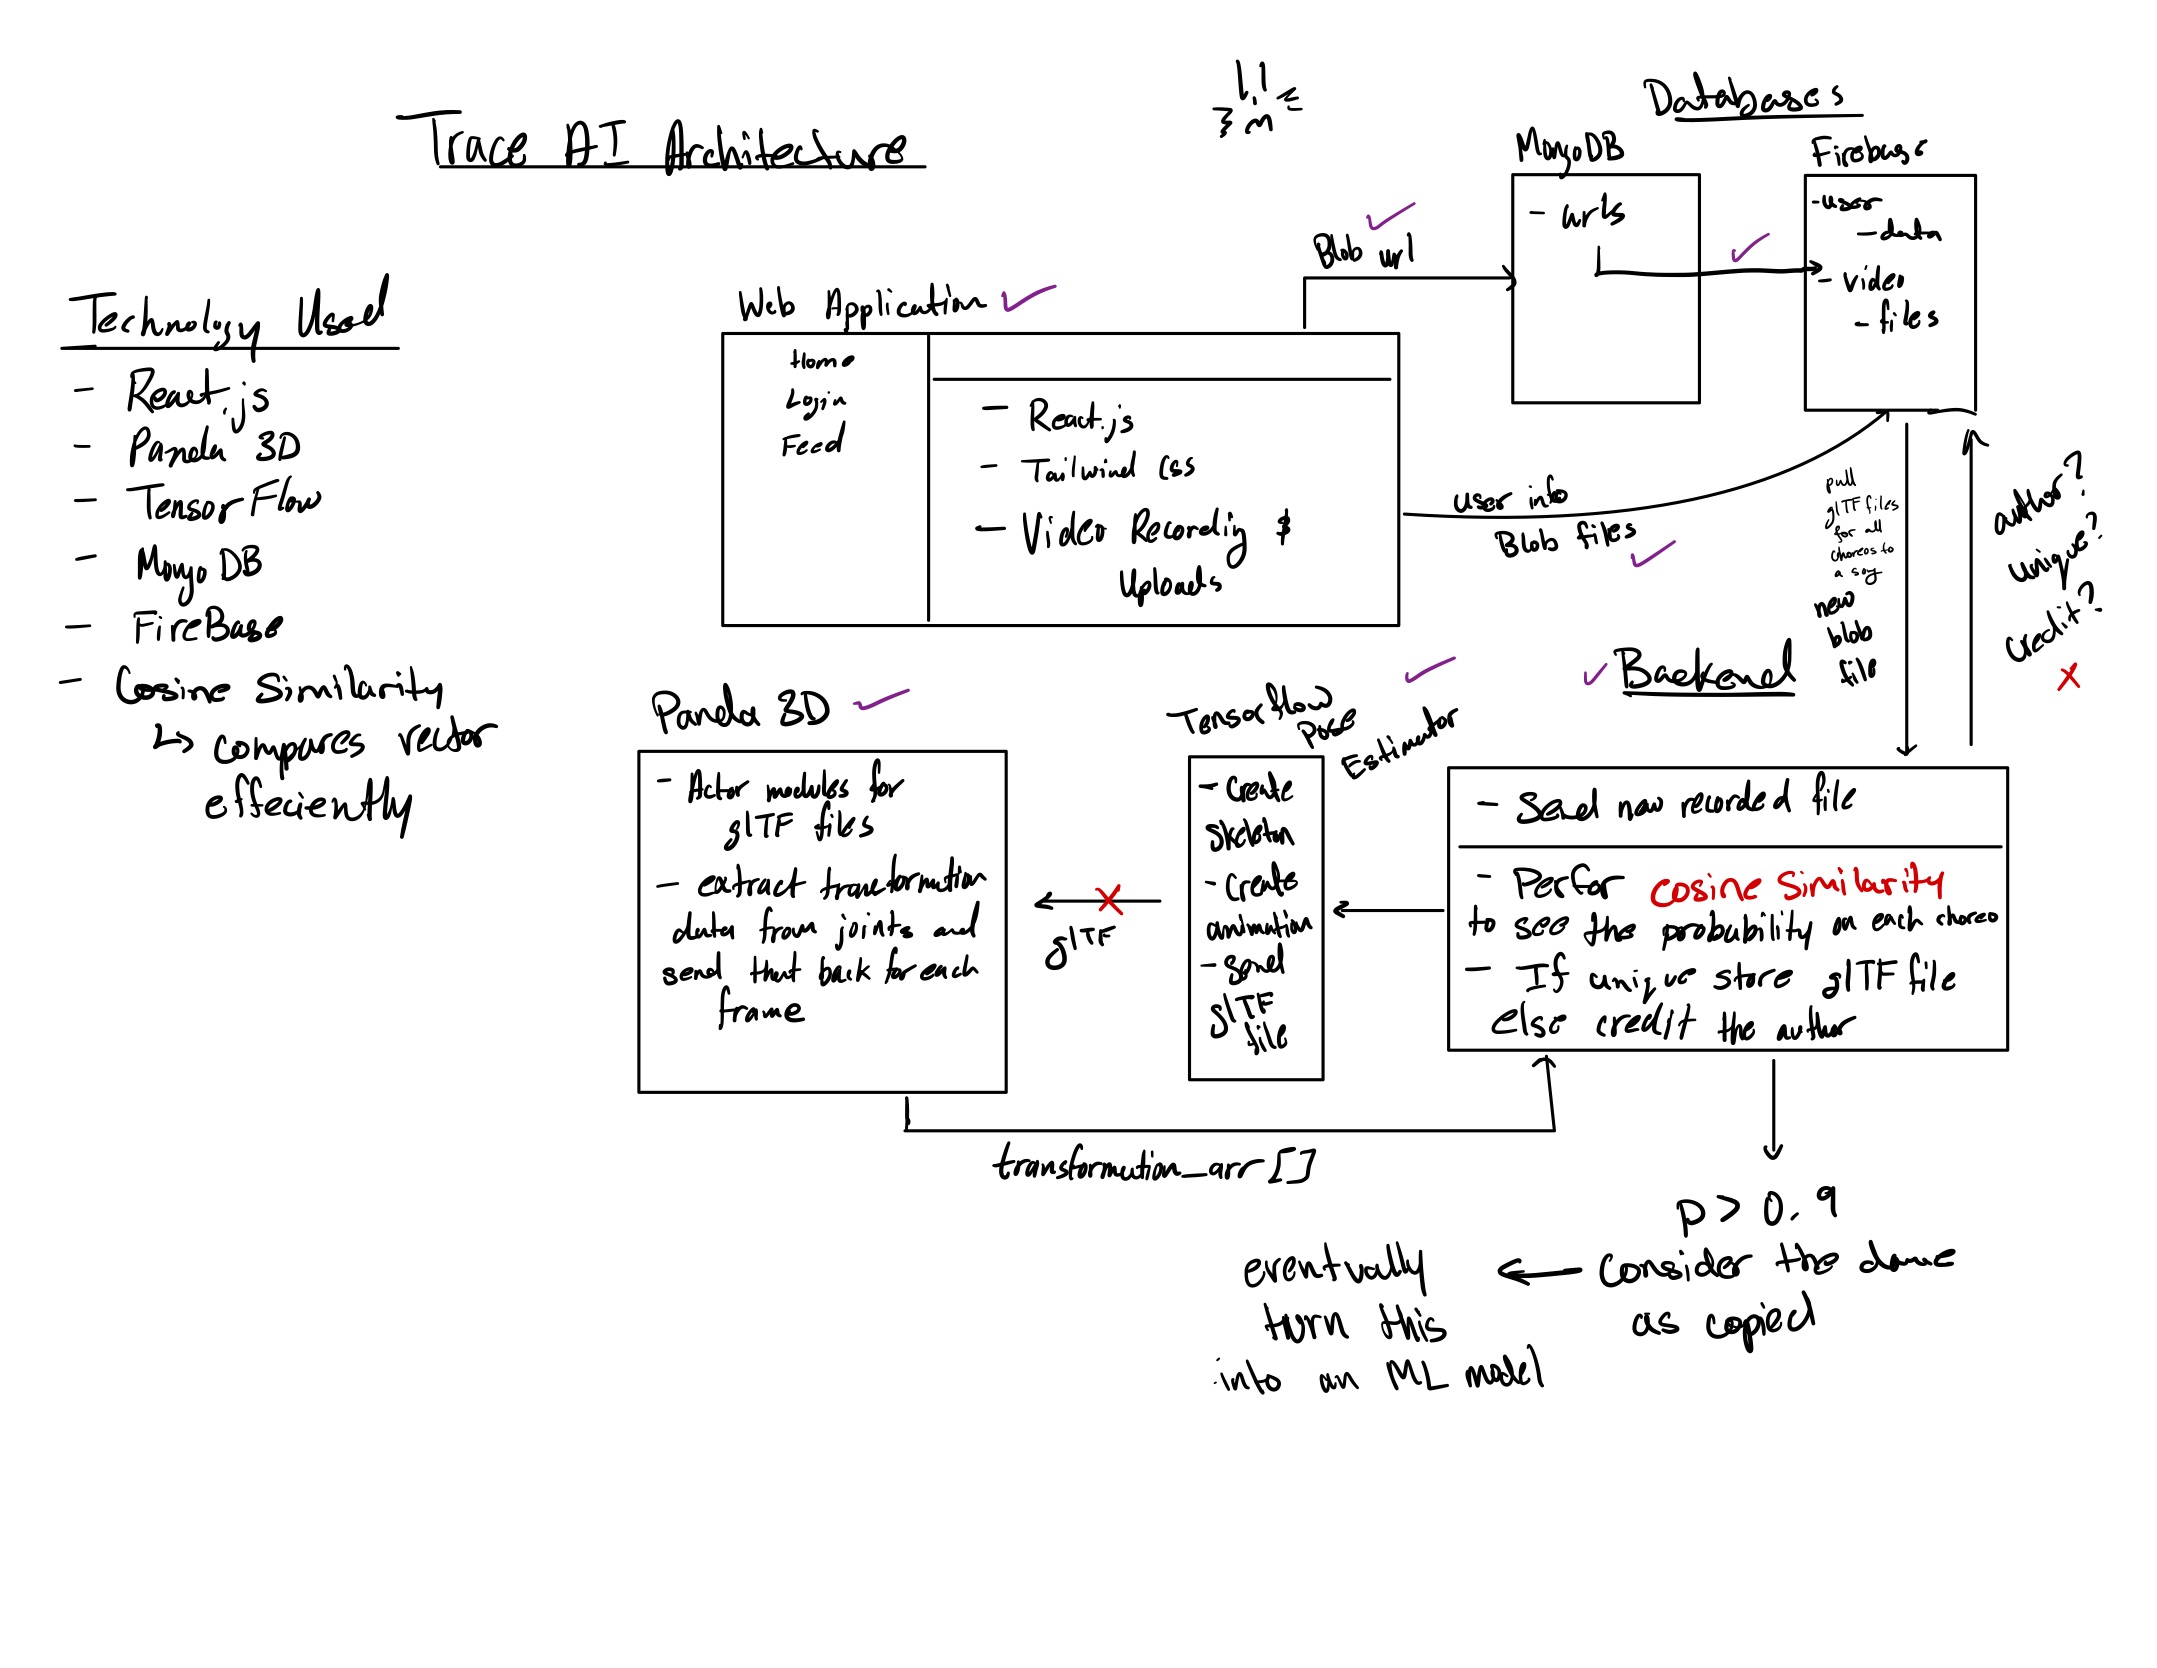 Trace AI Architecture
Technology Used
- React.js
- Panda 3D
- TensorFlow
- MongoDB
- FireBase
- Cosine Similarity
↳ compares vector
effeciently
Web Application
Home
Login
Feed
- React.js
- Tailwind CSS
- Video Recording &
Uploads
Blob url
Databases
MongoDB
- urls
Firebase
- user
- data
- video
- files
user info
Blob files
pull
glTF files
for all
choreos to
a song
new
blob
file
author?
unique?
credit?
Backend
- Send new recorded file
- Perfor cosine similarity
to see the probability on each choreo
- If unique store glTF file
else credit the author
Tensorflow
Pose
Estimator
- Create
skeleton
- Create
animation
- Send
glTF
file
glTF
Panda 3D
- Actor modules for
glTF files
- extract transformation
data from joints and
send that back for each
frame
transformation_arr[]
p > 0.9
consider the dance
as copied
eventually
turn this
into an ML model